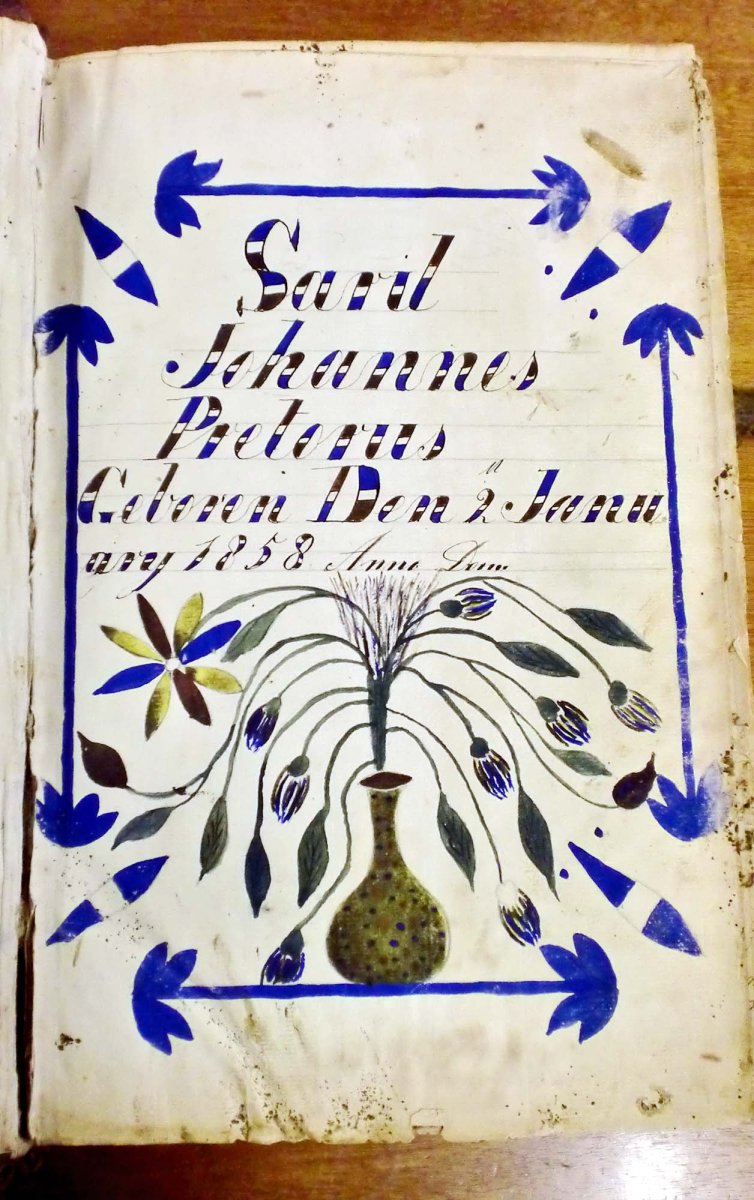 Saril
Johannes
Pretorus
Geboren Den 2 Janu
ary 1858 Anno Dom.